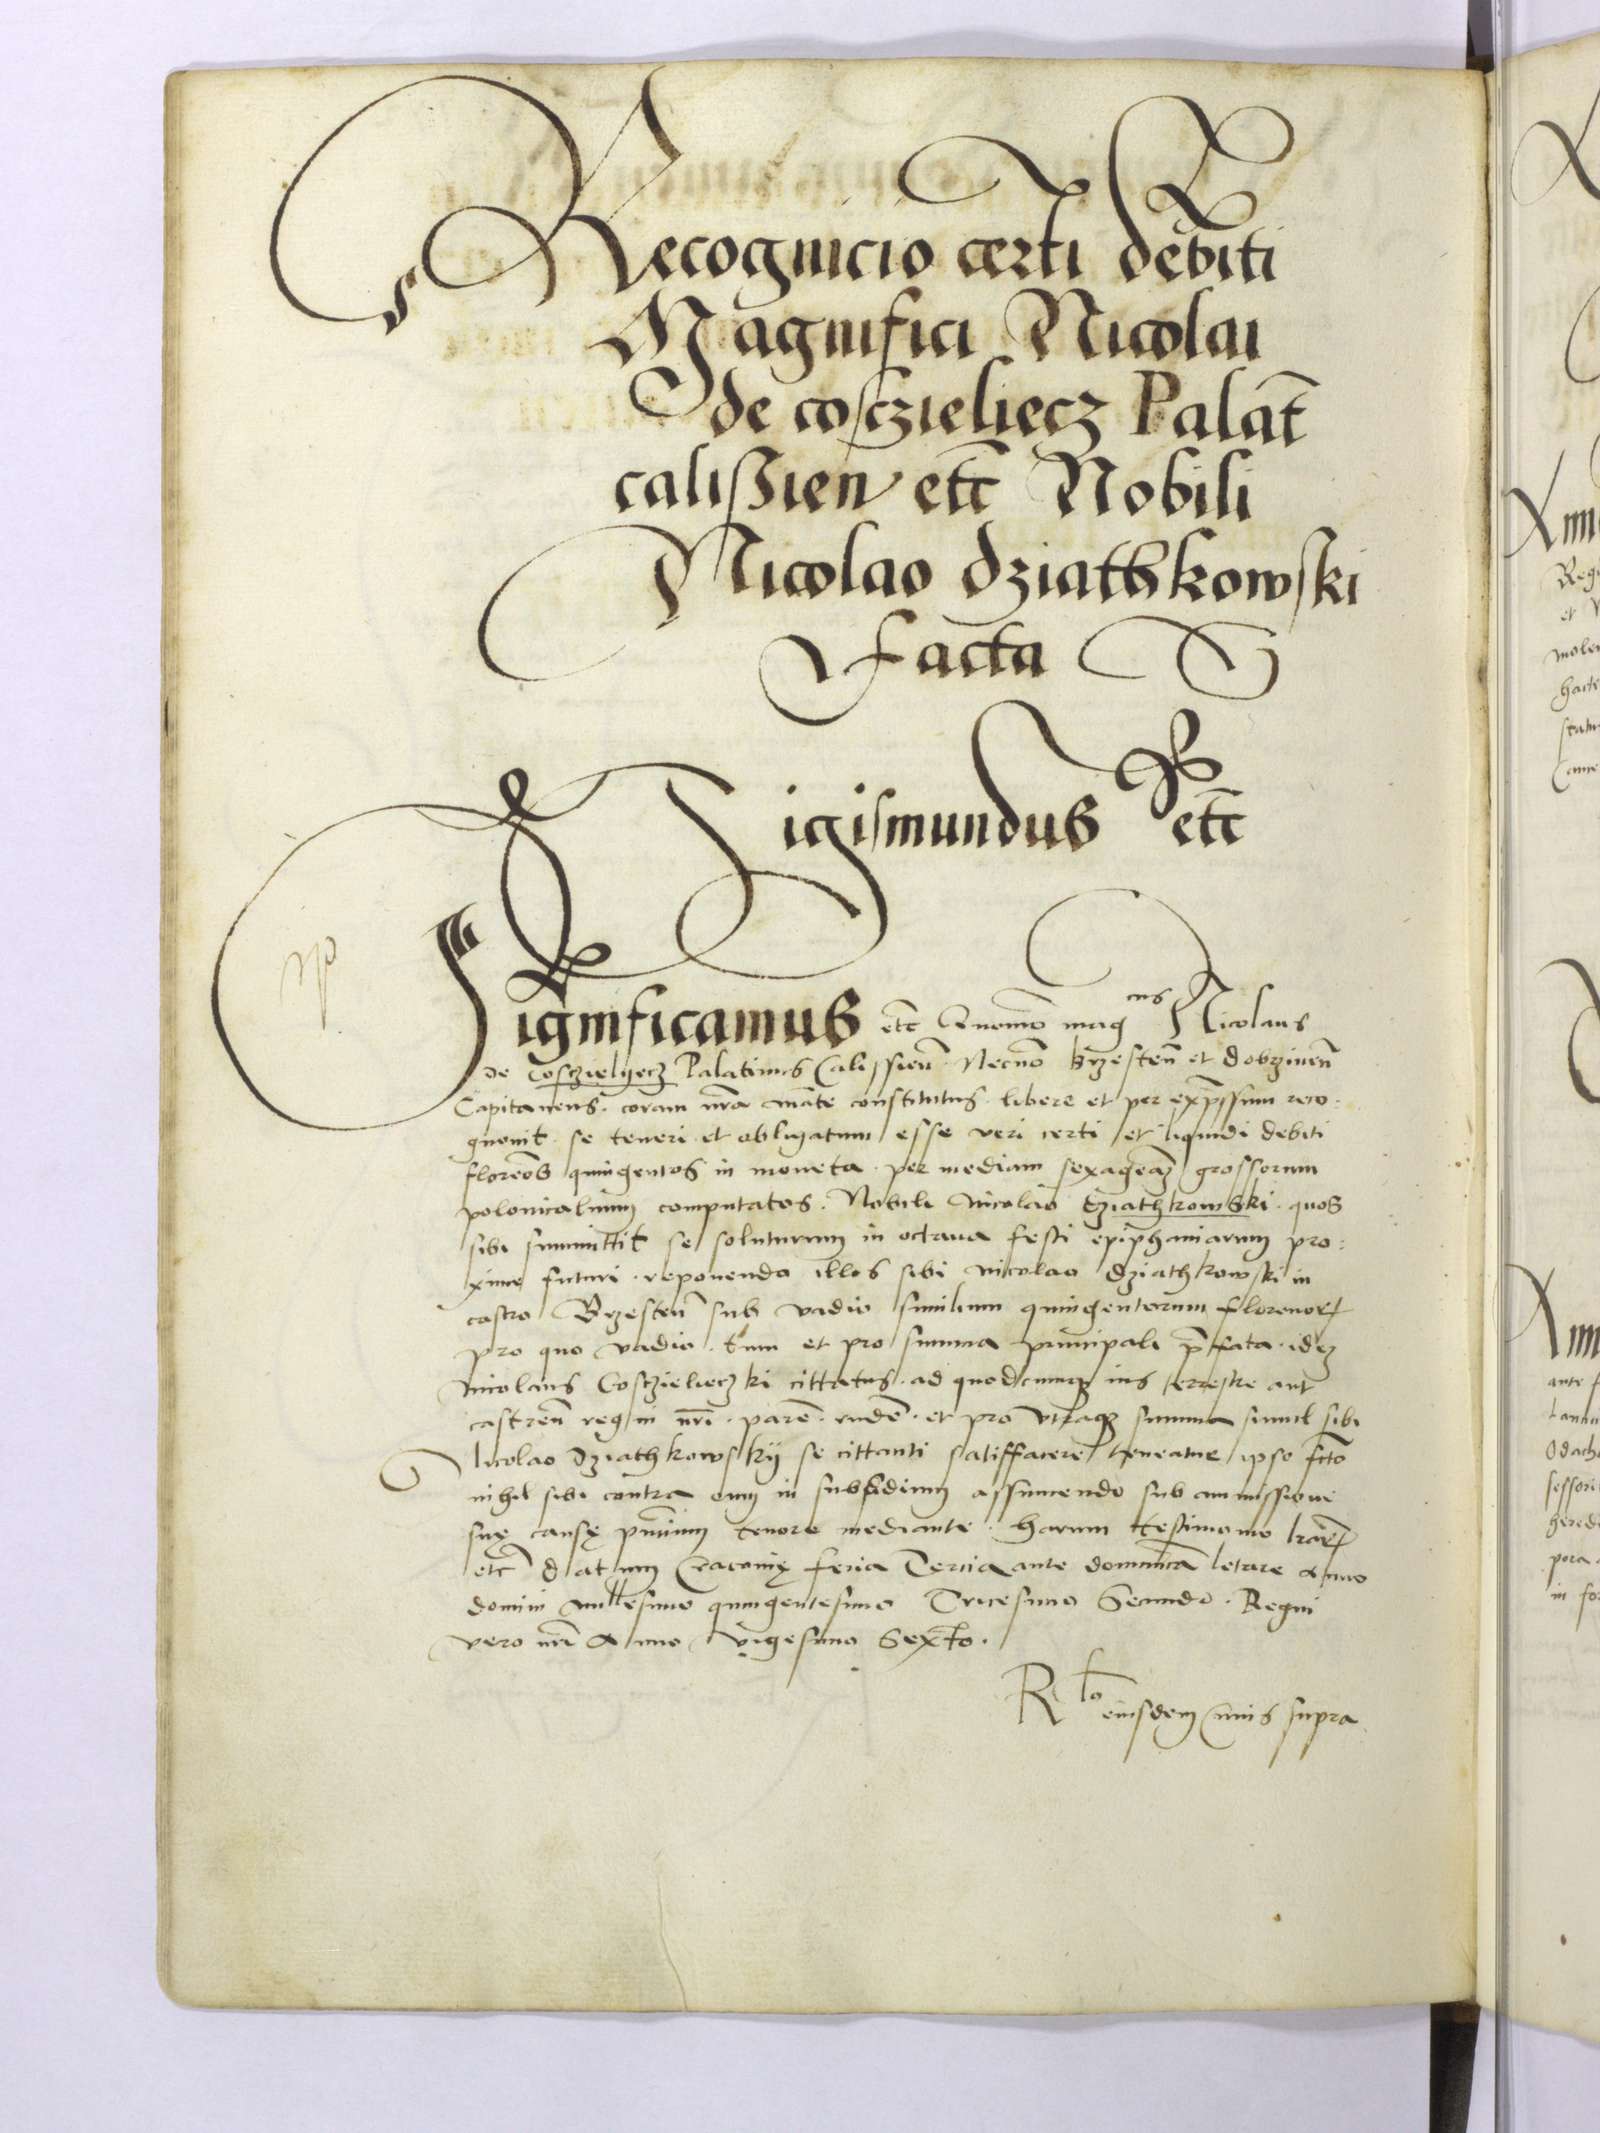 Recognicio certi debiti
Magnifici Nicolai
de cosczieliecz Palat̄
calissien̄ etc̄ Nobili
Nicolao dziathkowski
facta
Sigismundus etc̄
Significamus etc̄ Quomō mag^cus Nicolaus
de Cosczielyecz Palatinus Calissień. Necnō brzesteñ et dobrzineñ
Capitaneus. coram nr̄a māte constitutus. libere et per exp̄ssum reco:
gnouit. se teneri et obligatum esse veri certi et liquidi debiti
florenos quingentos in moneta. per mediam sexagenā grossorum
polonicalium computatos. Nobili Nicolao Dziathkowski. quos
sibi summittit se soluturum in octaua festi epiphaniarum pro:
xime futuri. reponendo illos sibi Nicolao Dziathkowski in
castro Brzesteñ sub vadio similium quingentorum florenor̷
pro quo vadio. tum et pro summa principali p̄fata. idem
Nicolaus Cosczielieczki cittatus. ad quodcumq̷ ius terrestre aut
castreñ regni nr̄i. parē. et pro vtraq̷ summa simul sibi
Nicolao Dziathkowskÿ se cittanti satisffacere teneatur ipso fcto
nihil sibi contra eum in subsidium assumendo sub ammissione
suę causę p̄ntium tenore mediante. harum testimonio lrar̷
etc̄ datum Cracouię feria Tercia ante dominicā letare Anno
domini millesimo quingentesimo Tricesimo Secundo. Regni
vero nr̄i Anno vigesimo Sexto.
R^to eiusdem cuius supra